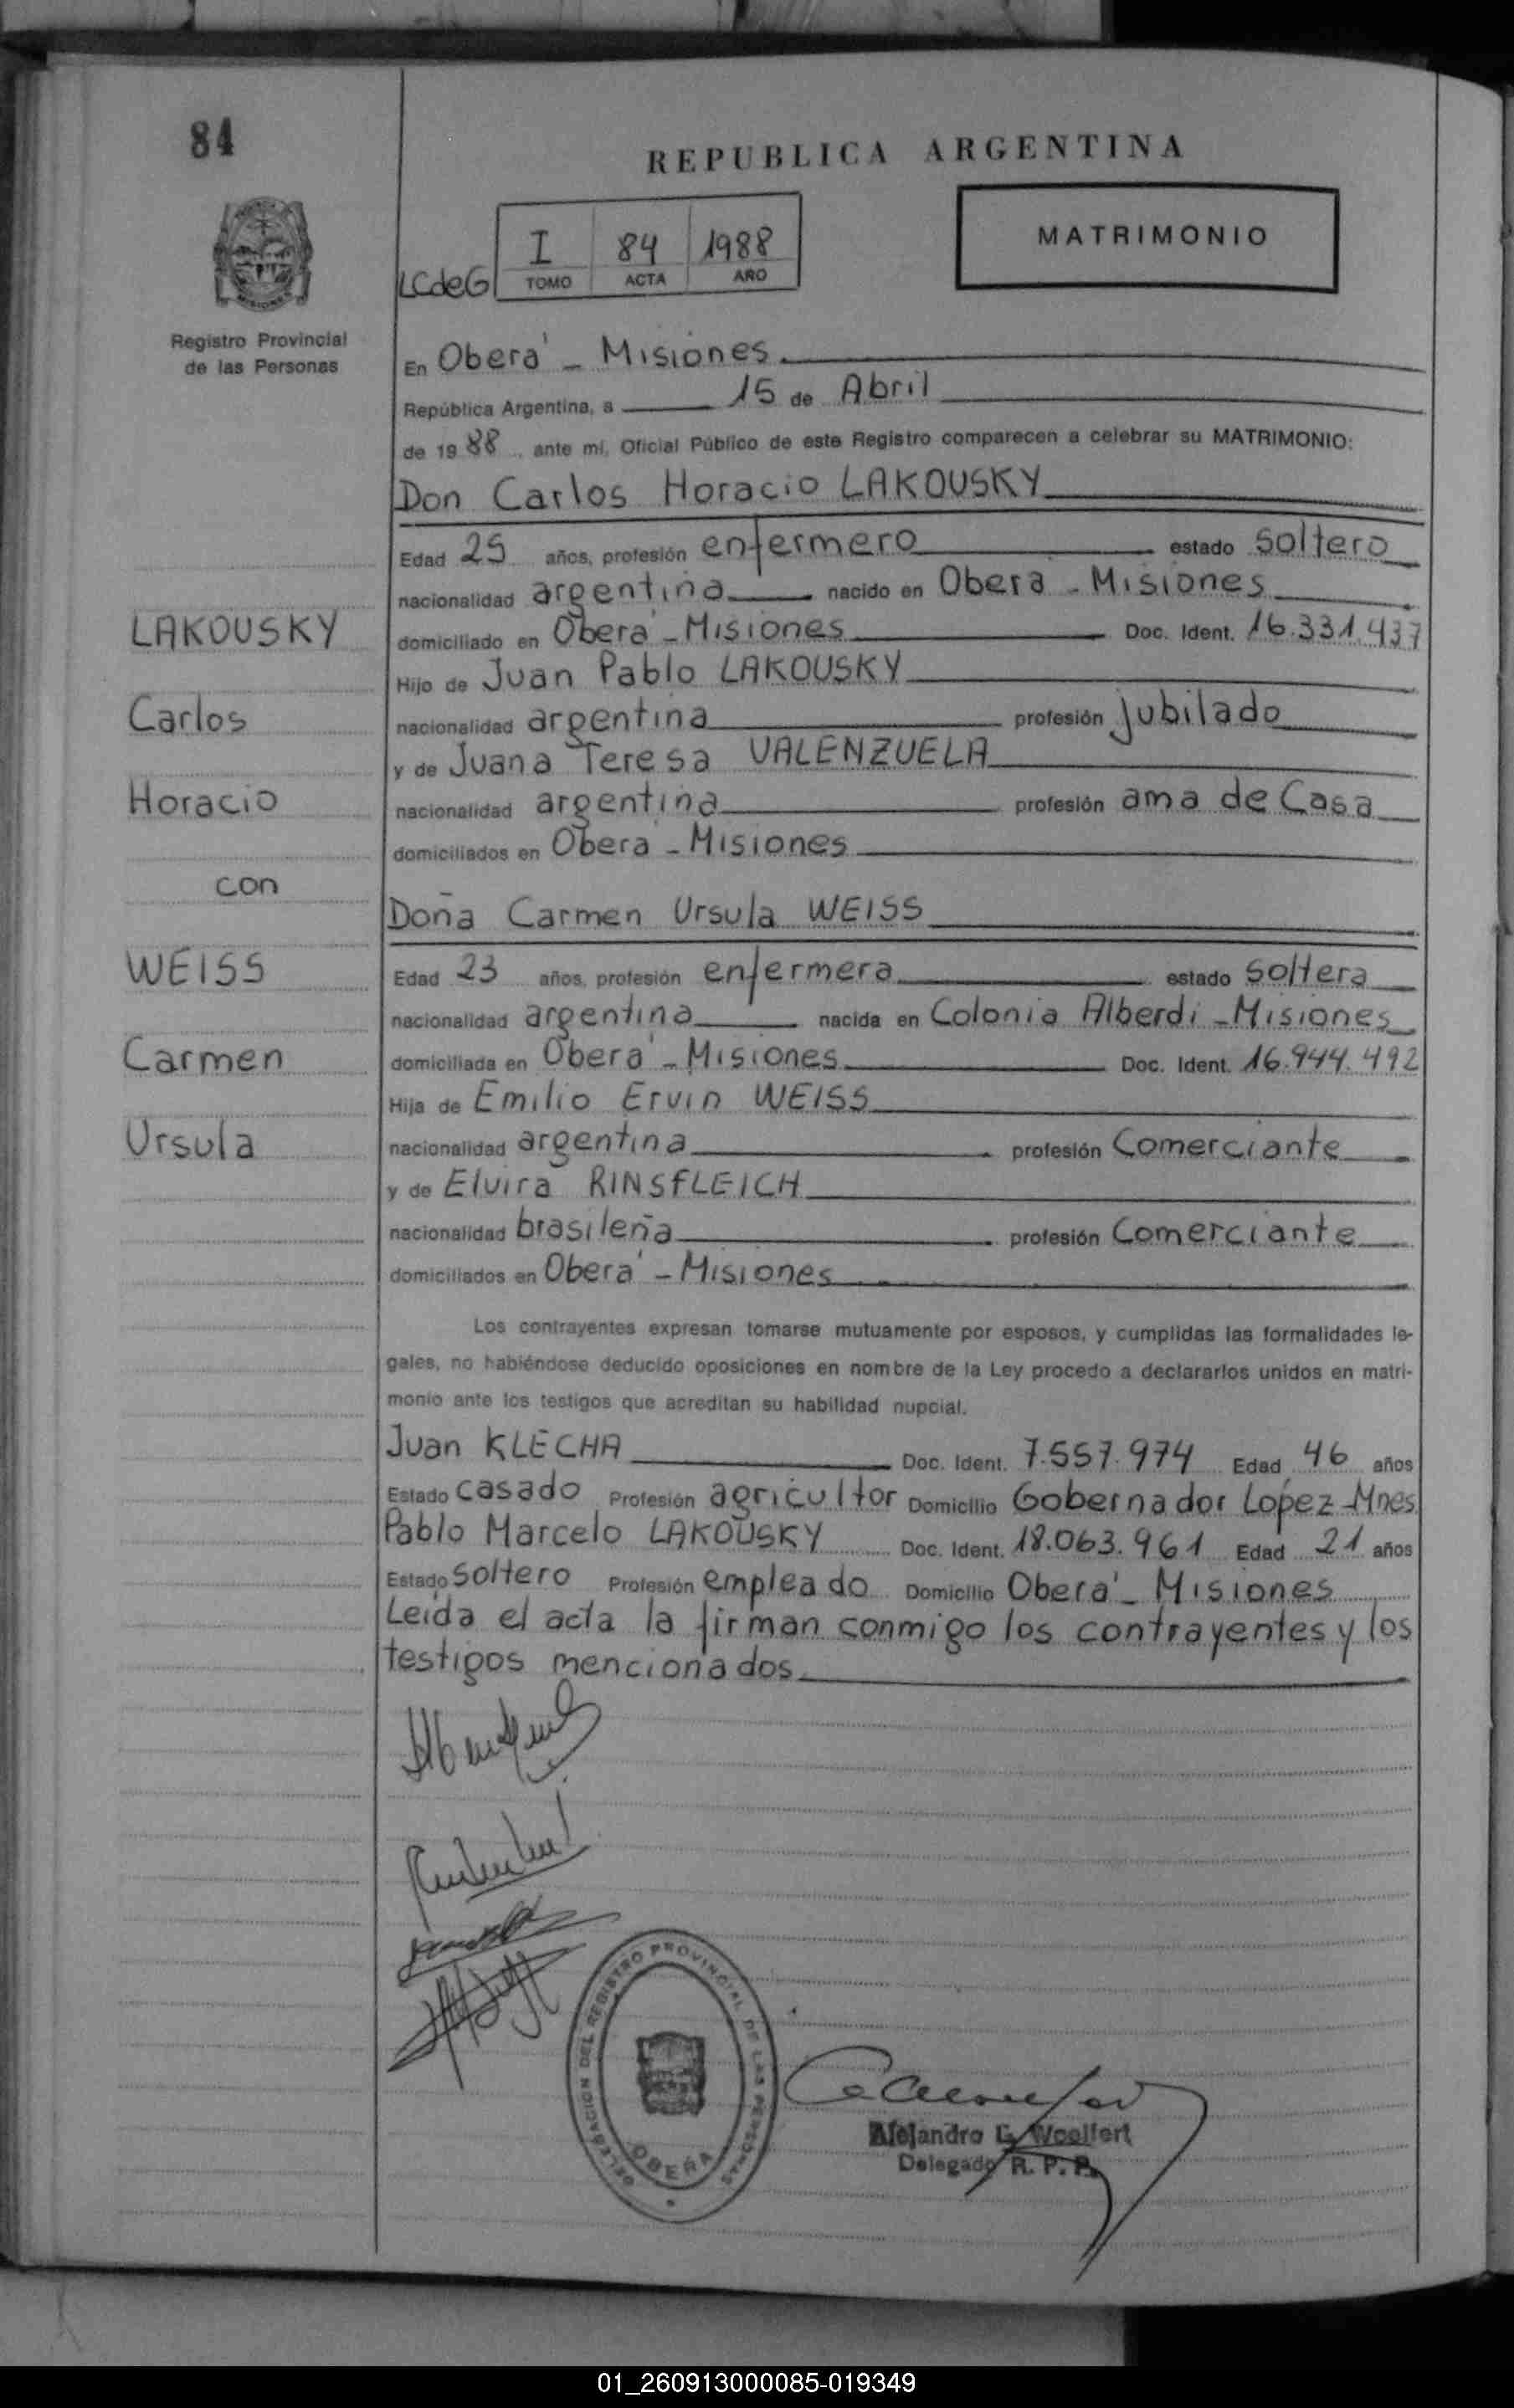 84
REPUBLICA ARGENTINA
MATRIMONIO
I 84 1988
LCdeG TOMO ACTA AÑO
MISIONES
Registro Provincial
de las Personas
En Oberá - Misiones.
República Argentina, a 15 de Abril
de 1988, ante mí, Oficial Público de este Registro comparecen a celebrar su MATRIMONIO:
Don Carlos Horacio LAKOUSKY
Edad 25 años, profesión enfermero estado soltero
nacionalidad argentina nacido en Oberá - Misiones
LAKOUSKY
domiciliado en Oberá - Misiones Doc. Ident. 16.331.437
Hijo de Juan Pablo LAKOUSKY
Carlos
nacionalidad argentina profesión jubilado
y de Juana Teresa VALENZUELA
Horacio
nacionalidad argentina profesión ama de Casa
domiciliados en Oberá - Misiones
con
Doña Carmen Ursula WEISS
WEISS
Edad 23 años, profesión enfermera estado soltera
nacionalidad argentina nacida en Colonia Alberdi - Misiones
Carmen
domiciliada en Oberá - Misiones Doc. Ident. 16.944.492
Hija de Emilio Ervin WEISS
Ursula
nacionalidad argentina profesión Comerciante
y de Elvira RINSfLEICH
nacionalidad brasileña profesión Comerciante
domiciliados en Oberá - Misiones
Los contrayentes expresan tomarse mutuamente por esposos, y cumplidas las formalidades le-
gales, no habiéndose deducido oposiciones en nombre de la Ley procedo a declararlos unidos en matri-
monio ante los testigos que acreditan su habilidad nupcial.
Juan KLECHA Doc. Ident. 7.557.974 Edad 46 años
Estado casado Profesión agricultor Domicilio Gobernador López - Mnes
Pablo Marcelo LAKOUSKY Doc. Ident. 18.063.961 Edad 21 años
Estado soltero Profesión empleado Domicilio Oberá - Misiones
Leída el acta la firman conmigo los contrayentes y los
testigos mencionados.
DELEGACION DEL REGISTRO PROVINCIAL DE LAS PERSONAS
OBERA
Alejandro G. Woelfert
Delegado R. P. P.
01_260913000085-019349